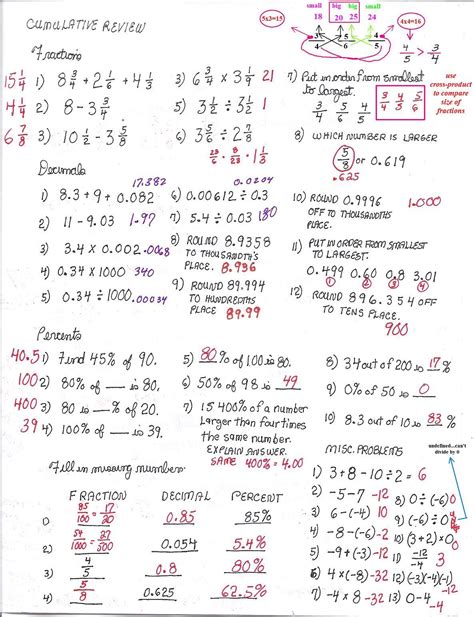 CUMULATIVE REVIEW
small big big small
5x3=15 18 20 25 24 4x4=16
3/4 5/6 4/5
4/5 > 3/4
Fractions
15 1/4 1) 8 3/4 + 2 1/6 + 4 1/3
4 1/4 2) 8 - 3 3/4
6 7/8 3) 10 1/2 - 3 5/8
3) 6 3/4 x 3 1/4 21
5) 3 1/2 ÷ 3 1/2 1
6) 3 5/6 ÷ 2 7/8
23/6 · 8/23 1 1/3
7) Put in order from smallest
to largest.
3/4 5/6 4/5
3/4 4/5 5/6
use
cross-product
to compare
size of
fractions
8) WHICH NUMBER IS LARGER
5/8 or 0.619
.625
Decimals
17.382
1) 8.3 + 9 + 0.082
2) 11 - 9.03 1.97
3) 3.4 x 0.002 .0068
4) 0.34 x 1000 340
5) 0.34 ÷ 1000 .00034
0.0204
6) 0.00612 ÷ 0.3
7) 5.4 ÷ 0.03 180
8) ROUND 8.9358
TO THOUSANDTH'S
PLACE. 8.936
9) ROUND 89.994
TO HUNDREDTHS
PLACE 89.99
10) ROUND 0.9996 1.000
OFF TO THOUSANDTHS
PLACE.
11) PUT IN ORDER FROM SMALLEST
TO LARGEST.
0.499 0.60 0.8 3.01
1 2 3 4
12) ROUND 896.354 OFF
TO TENS PLACE.
900
Percents
40.5 1) Find 45% of 90.
100 2) 80% of __ is 80.
400 3) 80 is __% of 20.
39 4) 100% of __ is 39.
5) 80% of 100 is 80.
6) 50% of 98 is 49
7) IS 400% of a number
larger than four times
the same number.
EXPLAIN ANSWER.
SAME 400% = 4.00
8) 34 out of 200 is 17%
9) 0% of 50 is 0
10) 8.3 out of 10 is 83 %
Fill in missing numbers
FRACTION DECIMAL PERCENT
1) 85/100 = 17/20 0.85 85%
2) 0.054 5.4%
3) 4/5 0.8 80%
4) 5/8 0.625 62.5%
MISC. PROBLEMS
undefined...can't
divide by 0
1) 3 + 8 - 10 ÷ 2 = 6
2) -5 - 7 -12
3) 6 - (-4) 10
4) -8 - (-6) -2
5) -9 + (-3) -12
6) 4 x (-8) -32
7) -4 x 8 -32
8) 0 ÷ (-6) 0
9) (-6) ÷ 0
10) (3+2) x 0
11) -12/-4 3
12) (-3)(-4)(-1)
-12
13) 0 - 4 -4